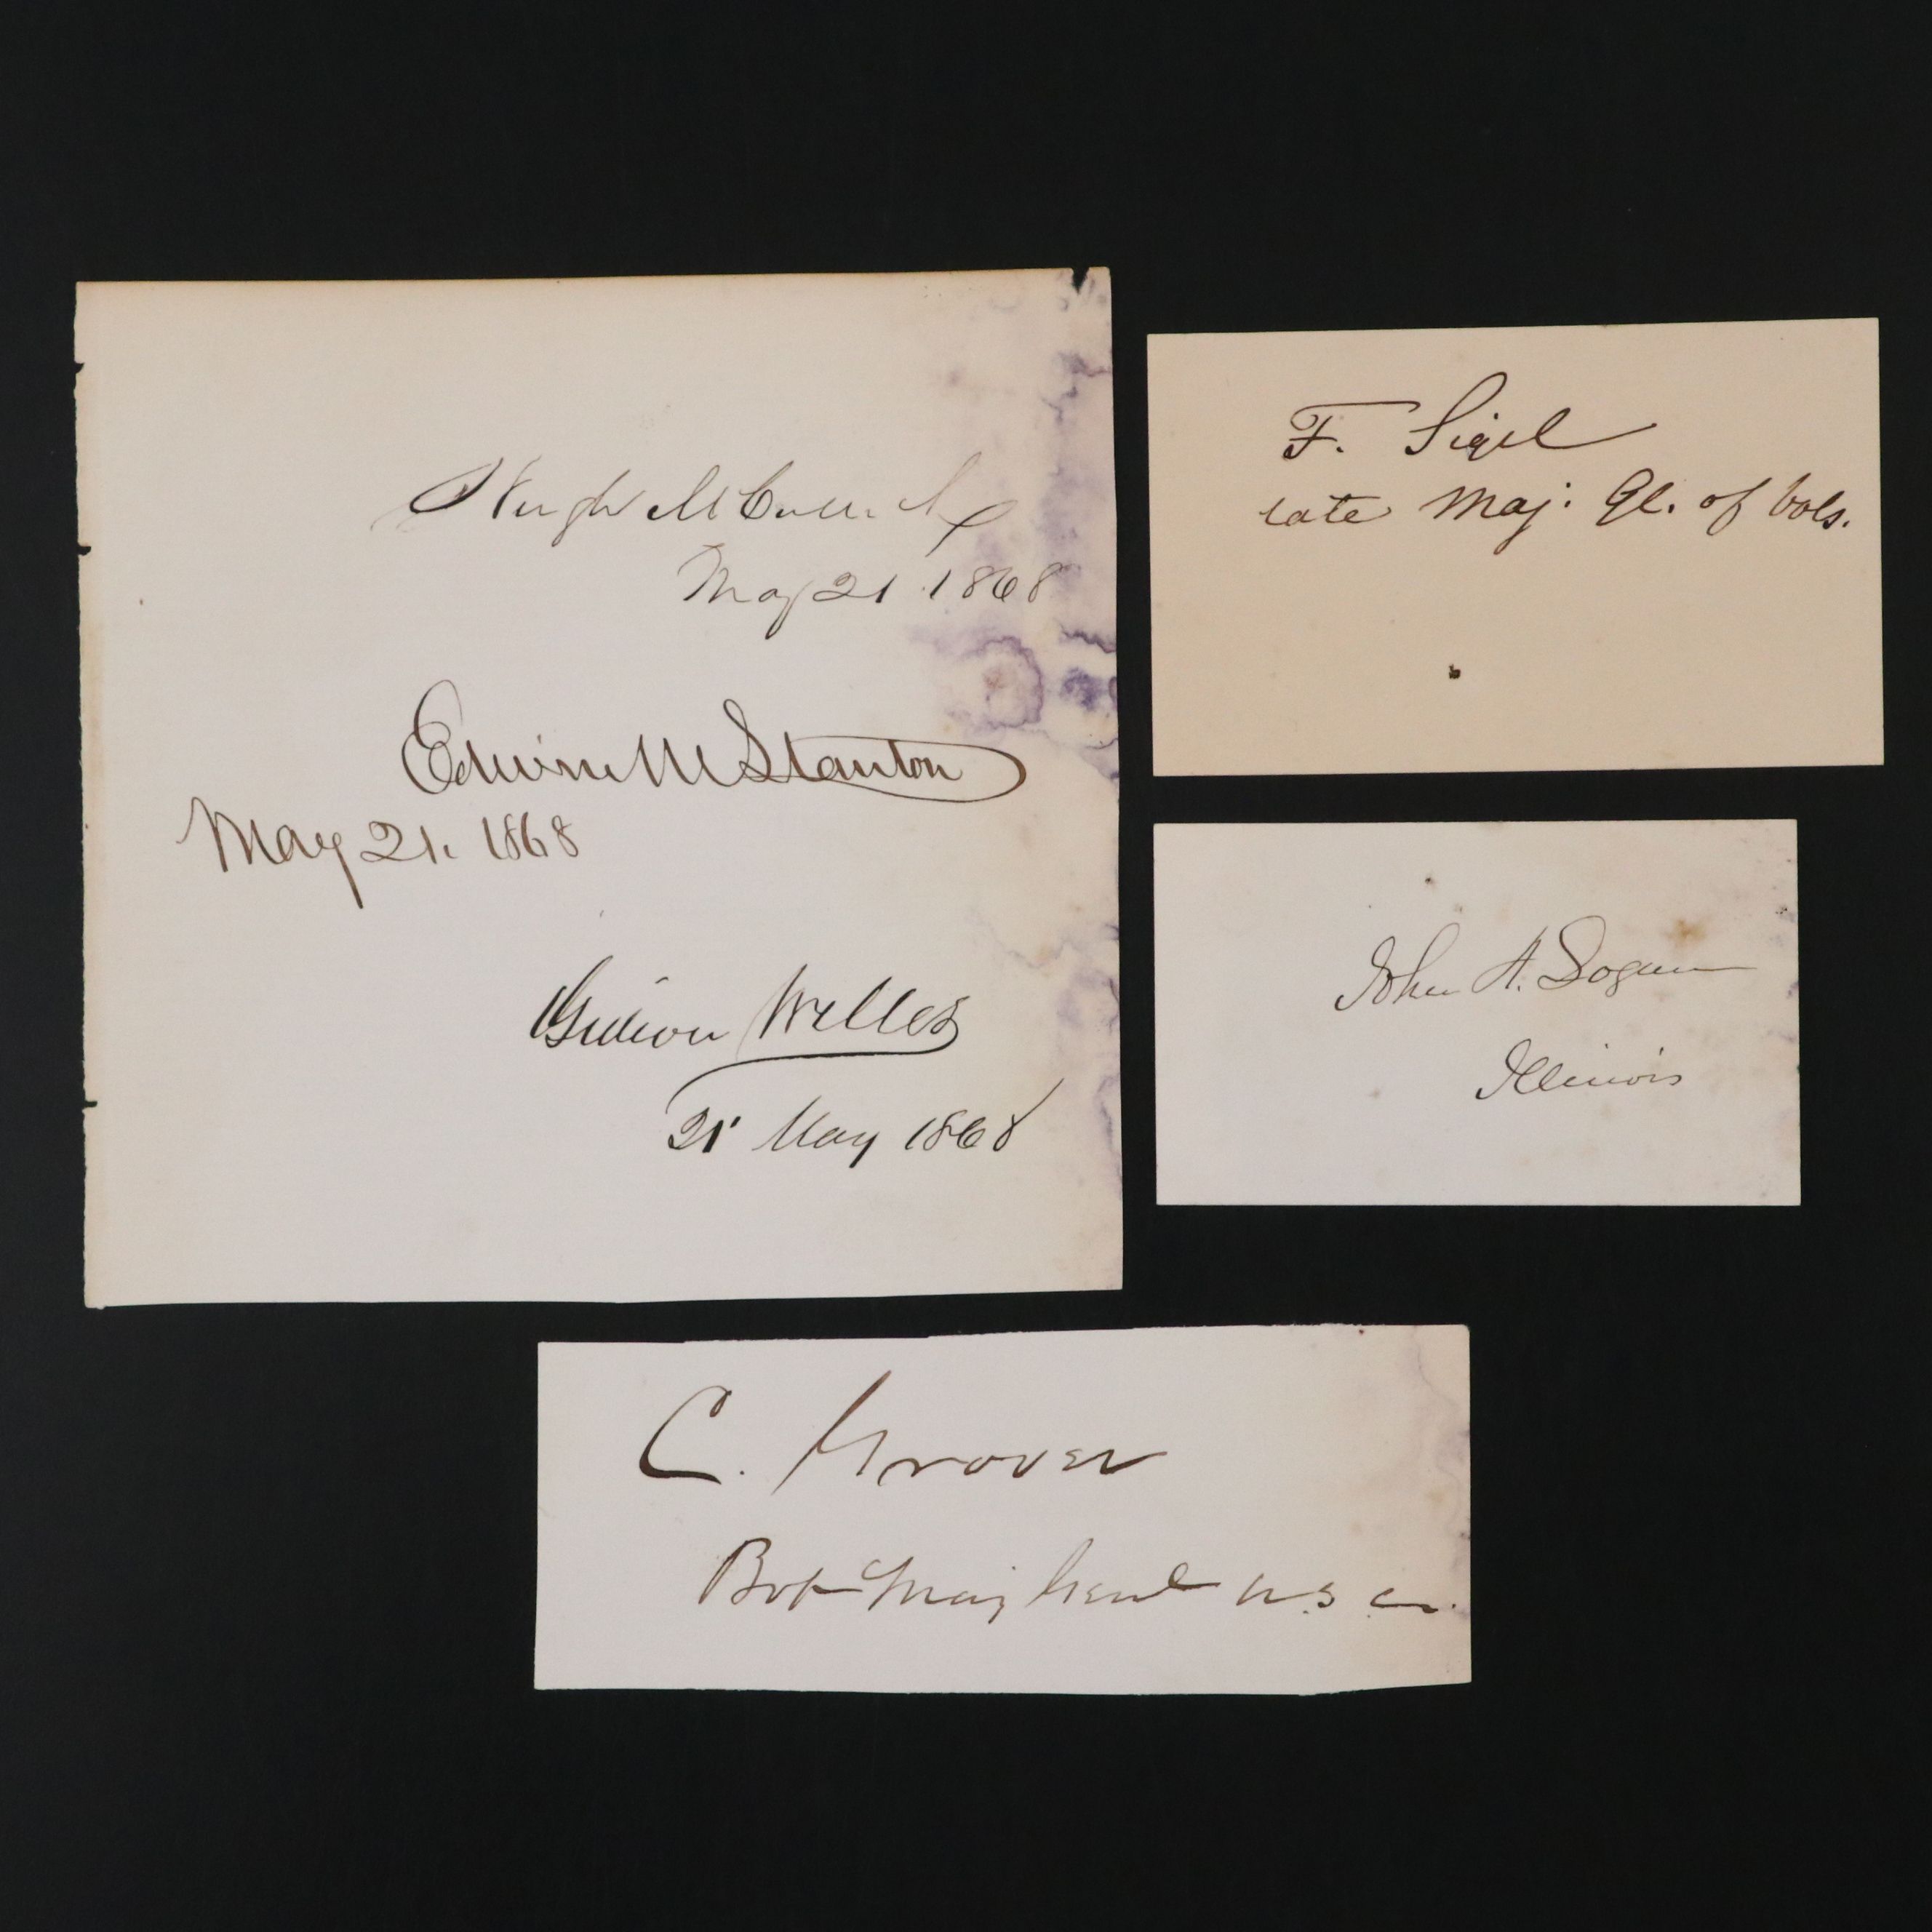 Hugh McCulloch
May 21 1868
Edwin M Stanton
May 21. 1868
Gideon Welles
21 May 1868
F. Sigel
late Maj: Gl. of vols.
John A. Logan
Illinois
C. Grover
Bvt Maj Genl U.S.A.